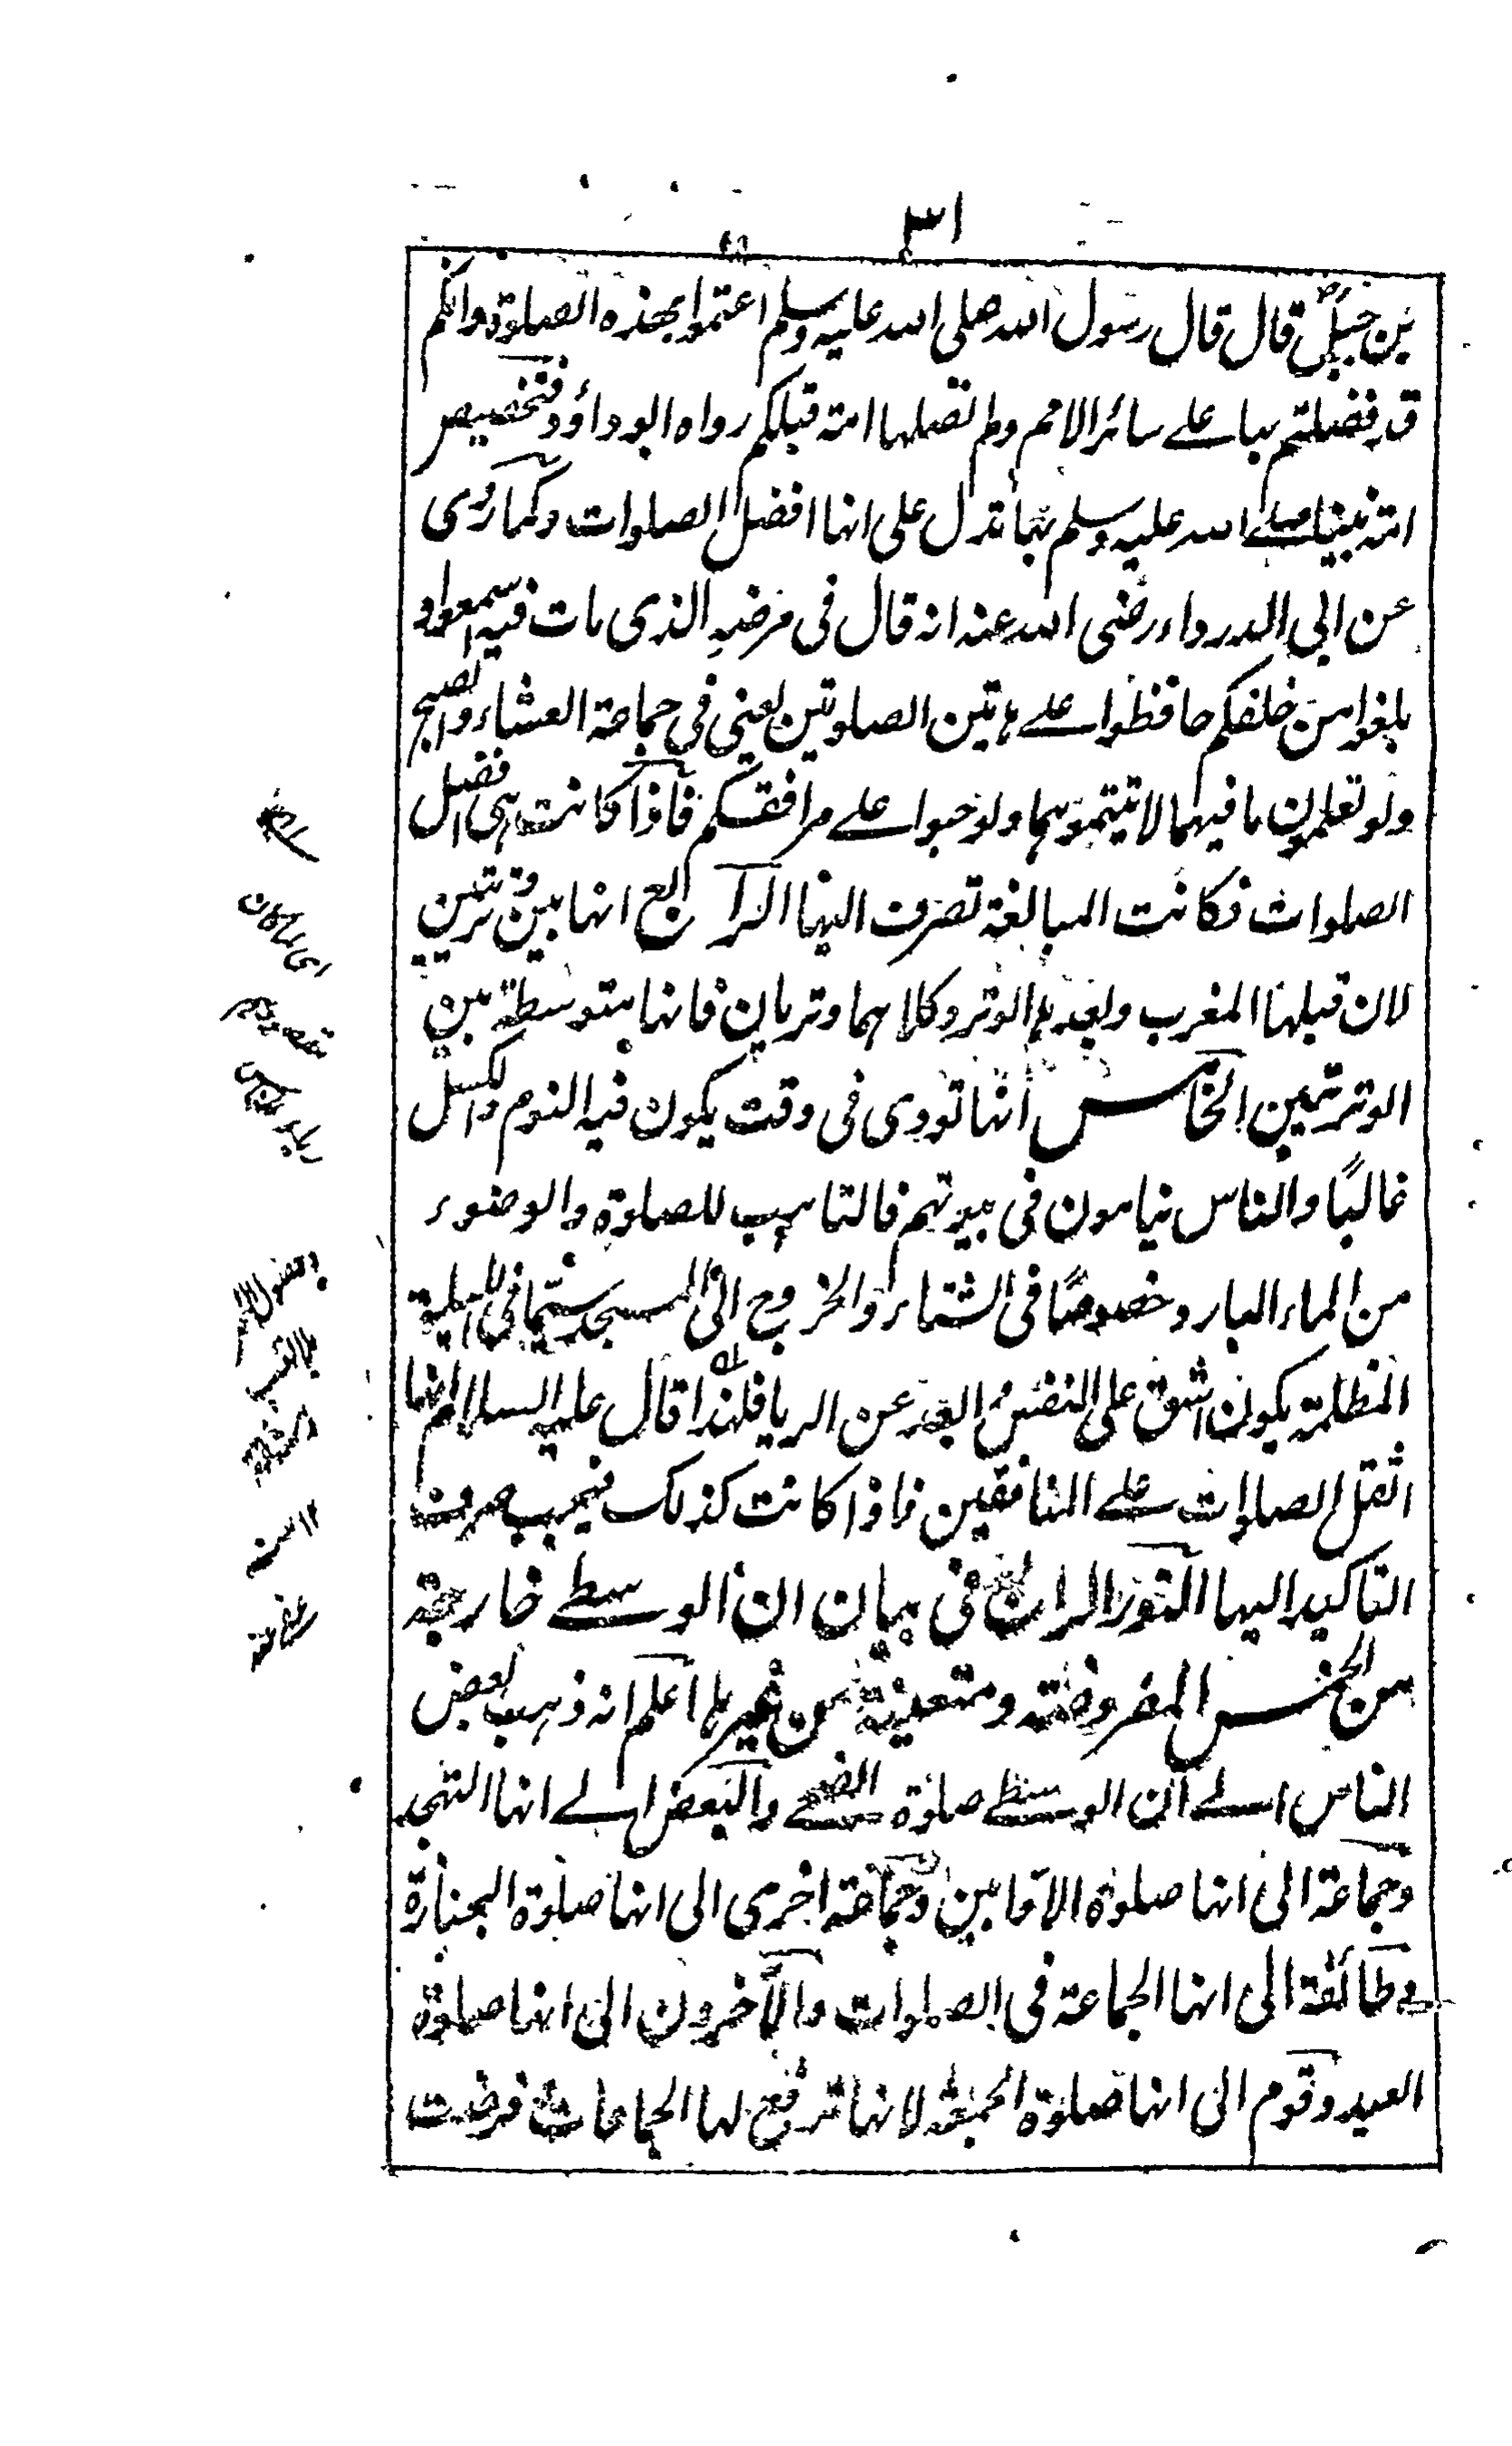 ٣١
بن جبلؓ قال قال رسول الله صلى الله عليه وسلم اعتموا بهذه الصلوة وانكم
قد فضلتم بها على سائر الامم ولم تصلها امة قبلكم رواه ابو داؤد فتخصيص
امة نبينا صلى الله عليه وسلم بها تدل على انها افضل الصلوات وكما روى
عن ابى الدرداء رضى الله عنه انه قال فى مرضه الذى مات فيه اسمعوا و
بلغوا من خلفكم حافظوا على هاتين الصلوتين يعنى فى جماعة العشاء والصبح
ولو تعلمون ما فيهما لاتيتموهما ولو حبوا على مرافقكم فاذا كانت هى افضل
الصلوات فكانت المبالغة تصرف اليها الرابع انها بين وترتين
لان قبلها المغرب وبعدها الوتر وكلاهما وتريان فانها متوسطة بين
الوترتين الخامس انها تؤدى فى وقت يكون فيه النوم والكسل
غالبًا والناس نيامون فى بيوتهم فالتاهب للصلوة والوضوء
من الماء البارد خصوصًا فى الشتاء والخروج الى المسجد سيما فى الليلة
المظلمة يكون اشق على النفس ابعد عن الريا فلهذا قال عليه السلام انها
اثقل الصلوات على المنافقين فاذا كانت كذلك فيجب صرف
التاكيد اليها النور الرابع فى بيان ان الوسطى خارجة
من الخمس المفروضة ومتعينة من غيرها اعلم انه ذهب بعض
الناس الى ان الوسطى صلوة الضحى والبعض الى انها التهجد
وجماعة الى انها صلوة الاوابين وجماعة اخرى الى انها صلوة الجنازة
وطائفة الى انها الجماعة فى الصلوات والآخرون الى انها صلوة
العيد وقوم الى انها صلوة الجمعة لانها ترفع لها الجماعات فرضت